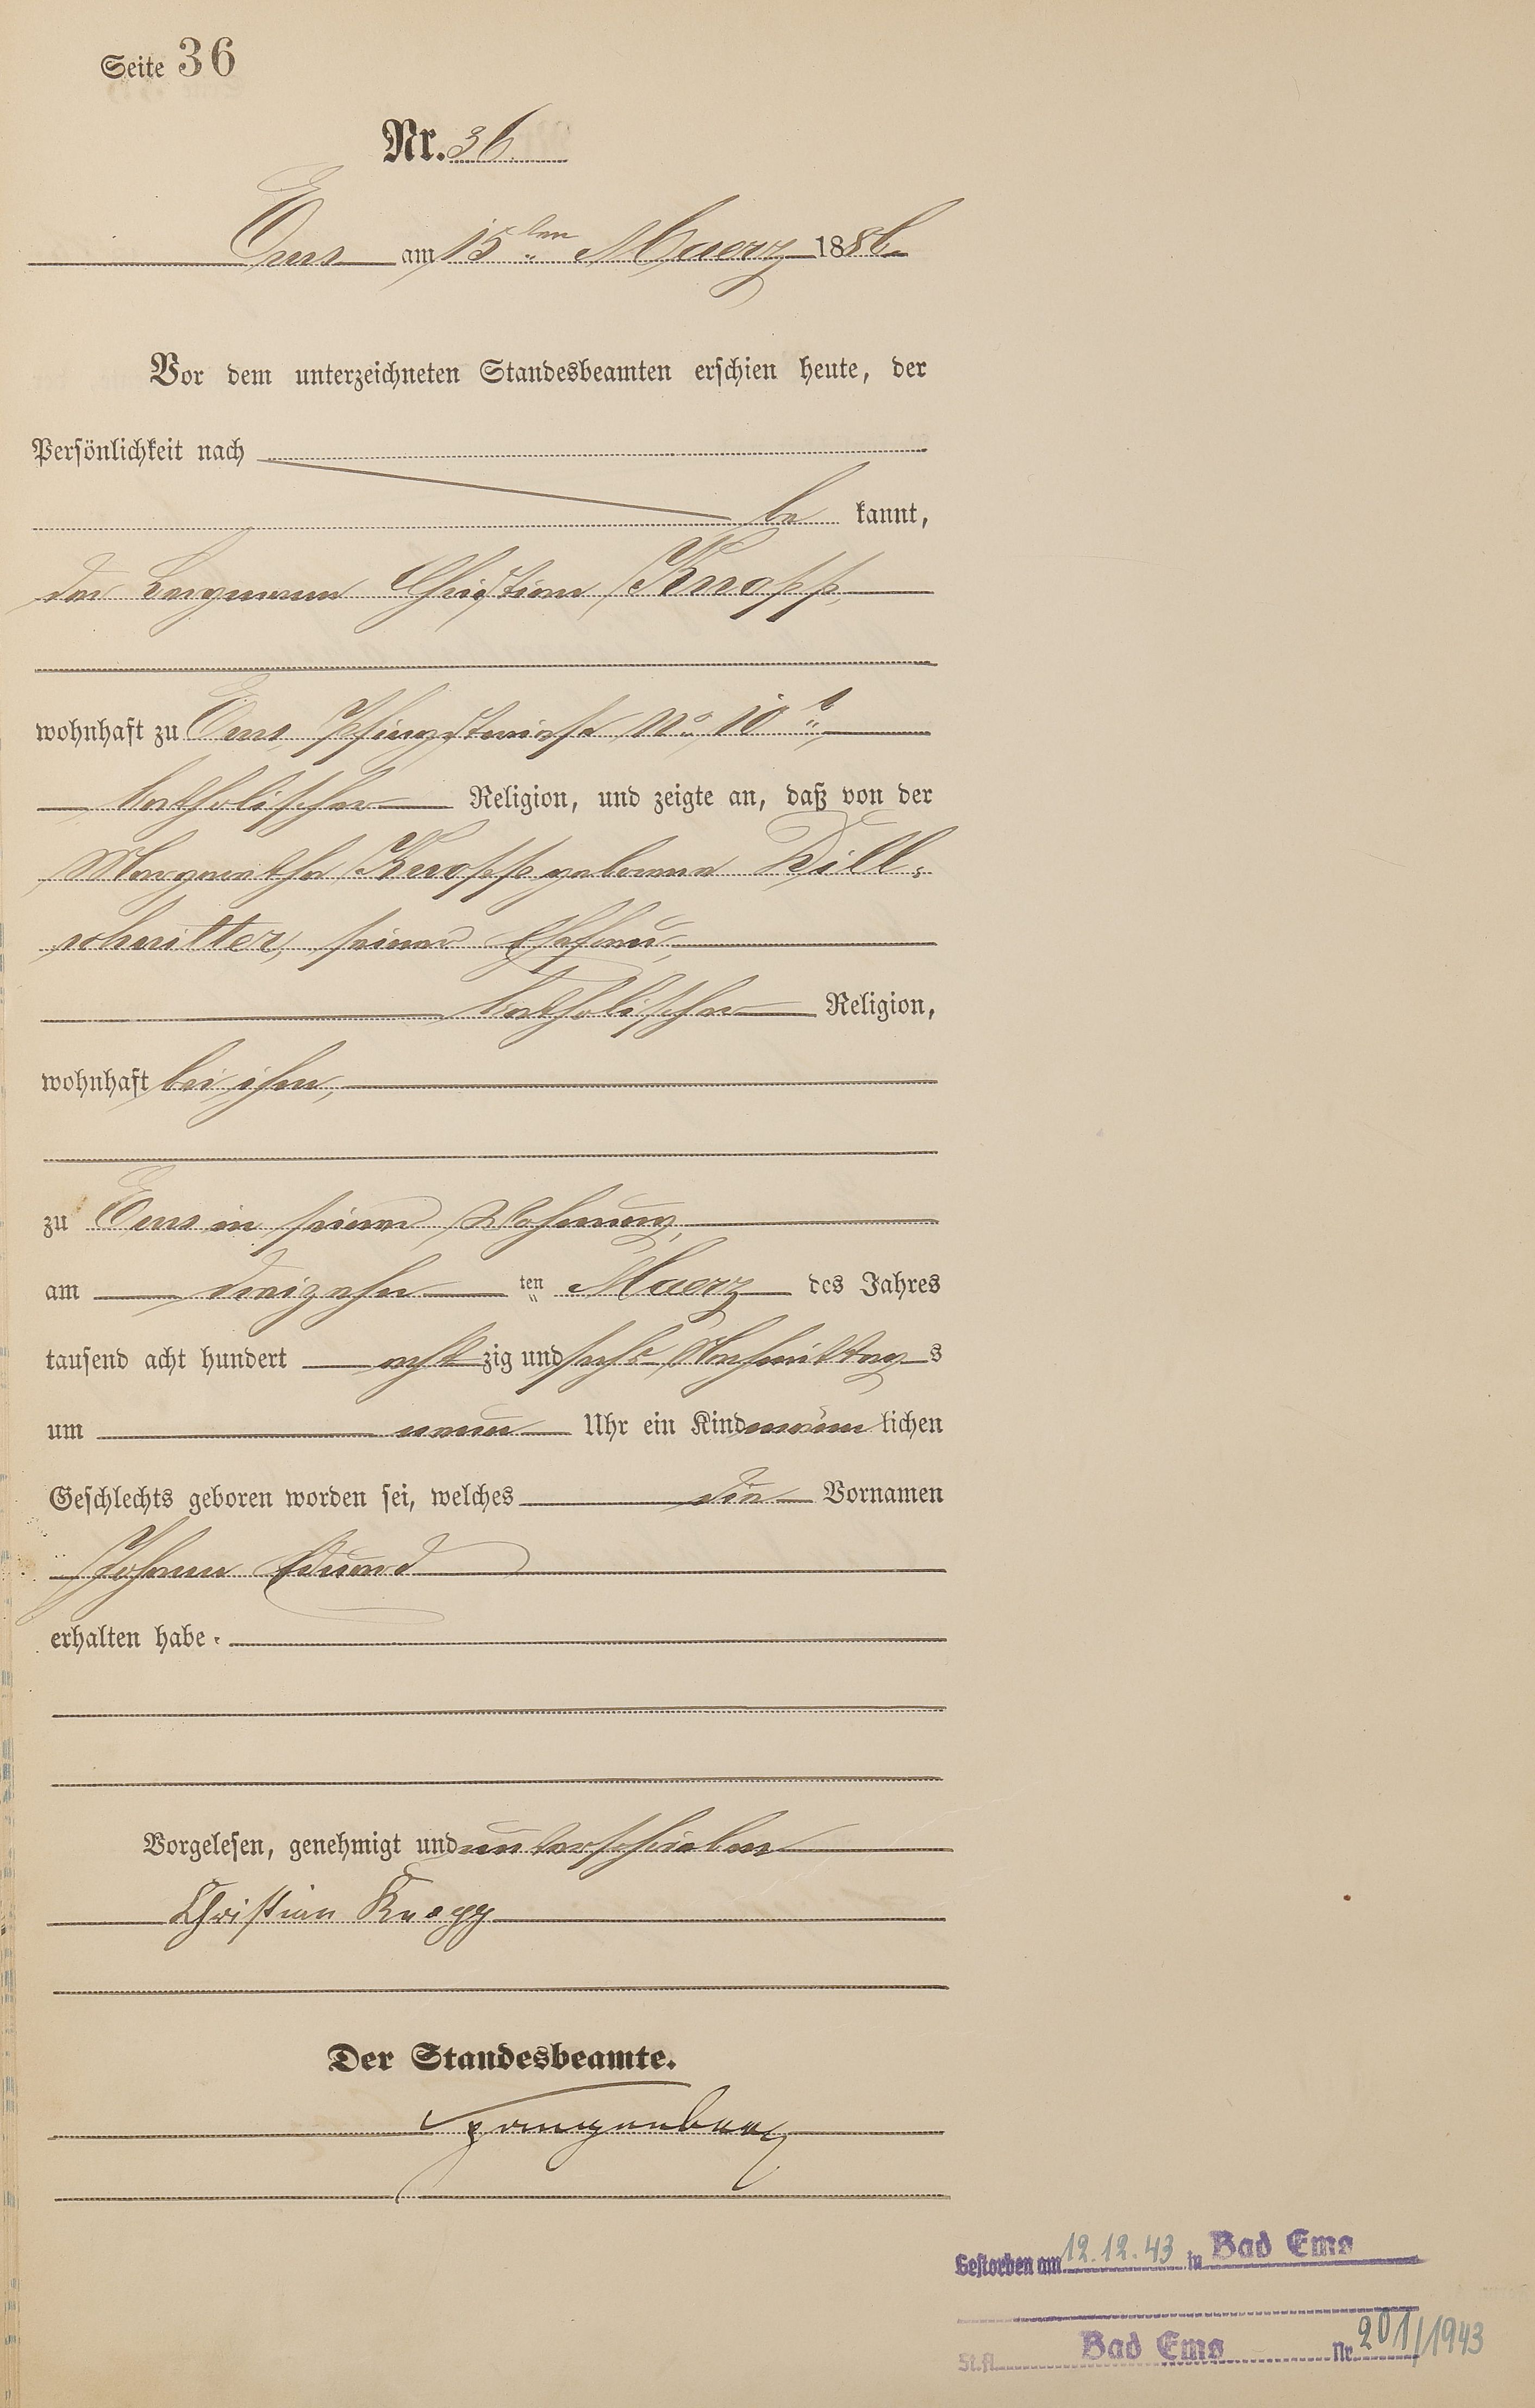 Seite 36
Nr. 36.
Ems am 15ten Maerz 1886.
Vor dem unterzeichneten Standesbeamten erschien heute, der
Persönlichkeit nach
be kannt,
der Bergmann Christian Knopp,
wohnhaft zu Ems, Pfingstwiese No. 10 b,
katholischer Religion, und zeigte an, daß von der
Margaretha Knopp geborene Dill-
schnitter, seiner Ehefrau,
katholischer Religion,
wohnhaft bei ihm,
zu Ems in seiner Wohnung,
am dreizehn ten Maerz des Jahres
tausend acht hundert acht zig und sechs Nachmittag s
um neun Uhr ein Kind männ lichen
Geschlechts geboren worden sei, welches die Vornamen
Johann Eduard
erhalten habe.
Vorgelesen, genehmigt und unterschrieben
Christian Knopp
Der Standesbeamte.
Gestorben am 12.12.43 in Bad Ems
St.A. Bad Ems Nr. 201/1943